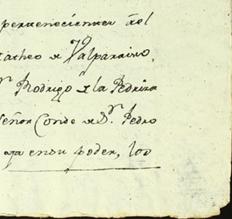 pertenecientes del
Pacheo de Valparaiso,
Dn. Rodrigo de la Pedriza
Señor Conde de Sn. Pedro
para en su Poder, los